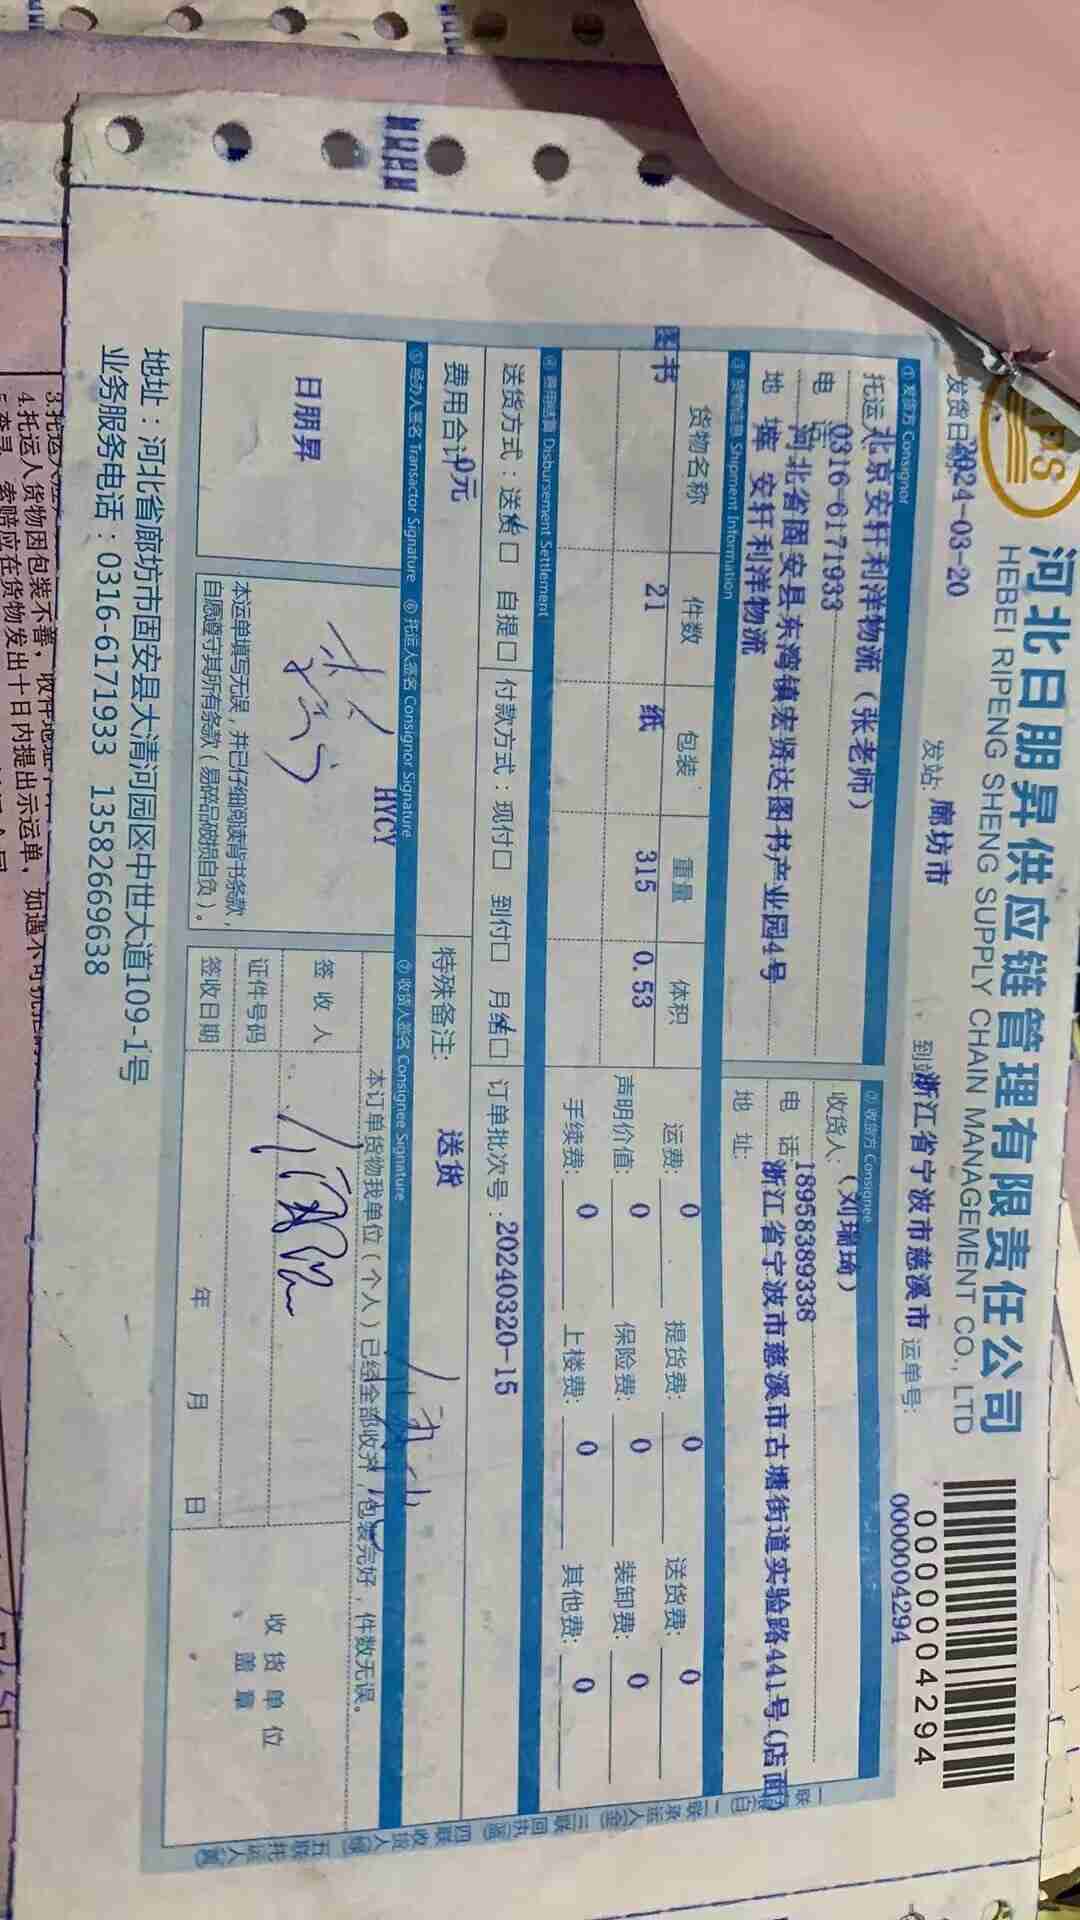 河北日朋昇供应链管理有限责任公司
HEBEI RIPENG SHENG SUPPLY CHAIN MANAGEMENT CO., LTD
0000004294
发货日期 2024-03-20 发站: 廊坊市 到站 浙江省宁波市慈溪市 运单号: 0000004294
① 发货方 Consignor ② 收货方 Consignee
托运人 北京安轩利洋物流（张老师） 收货人: （刘瑞琦）
电 话 0316-6171933 电 话 18958389338
地 址 河北省固安县东湾镇宏贤达图书产业园4号 安轩利洋物流 地 址: 浙江省宁波市慈溪市古塘街道实验路441号(店面)
③ 货物信息 Shipment Information
货物名称 件数 包装 重量 体积 运费: 0 提货费: 0 送货费: 0
图书 21 纸 315 0.53 声明价值: 0 保险费: 0 装卸费: 0
手续费: 0 上楼费: 0 其他费: 0
④ 费用结算 Disbursement Settlement
送货方式：送货□ 自提□ 付款方式：现付□ 到付□ 月结□ 订单批次号: 20240320-15
费用合计 0元 特殊备注: 送货
⑤ 经办人签名 Transactor Signature ⑥ 托运人签名 Consignor Signature ⑦ 收货人签名 Consignee Signature
HYCY
本订单货物我单位（个人）已经全部收齐，包装完好，件数无误。
日朋昇
签 收 人
证件号码
签收日期 年 月 日
收 货 单 位
盖 章
本运单填写无误，并已仔细阅读背书条款，
自愿遵守其所有条款（易碎品破损自负）。
地址：河北省廊坊市固安县大清河园区中世大道109-1号
业务服务电话：0316-6171933 13582669638
4.托运人货物因包装不善，